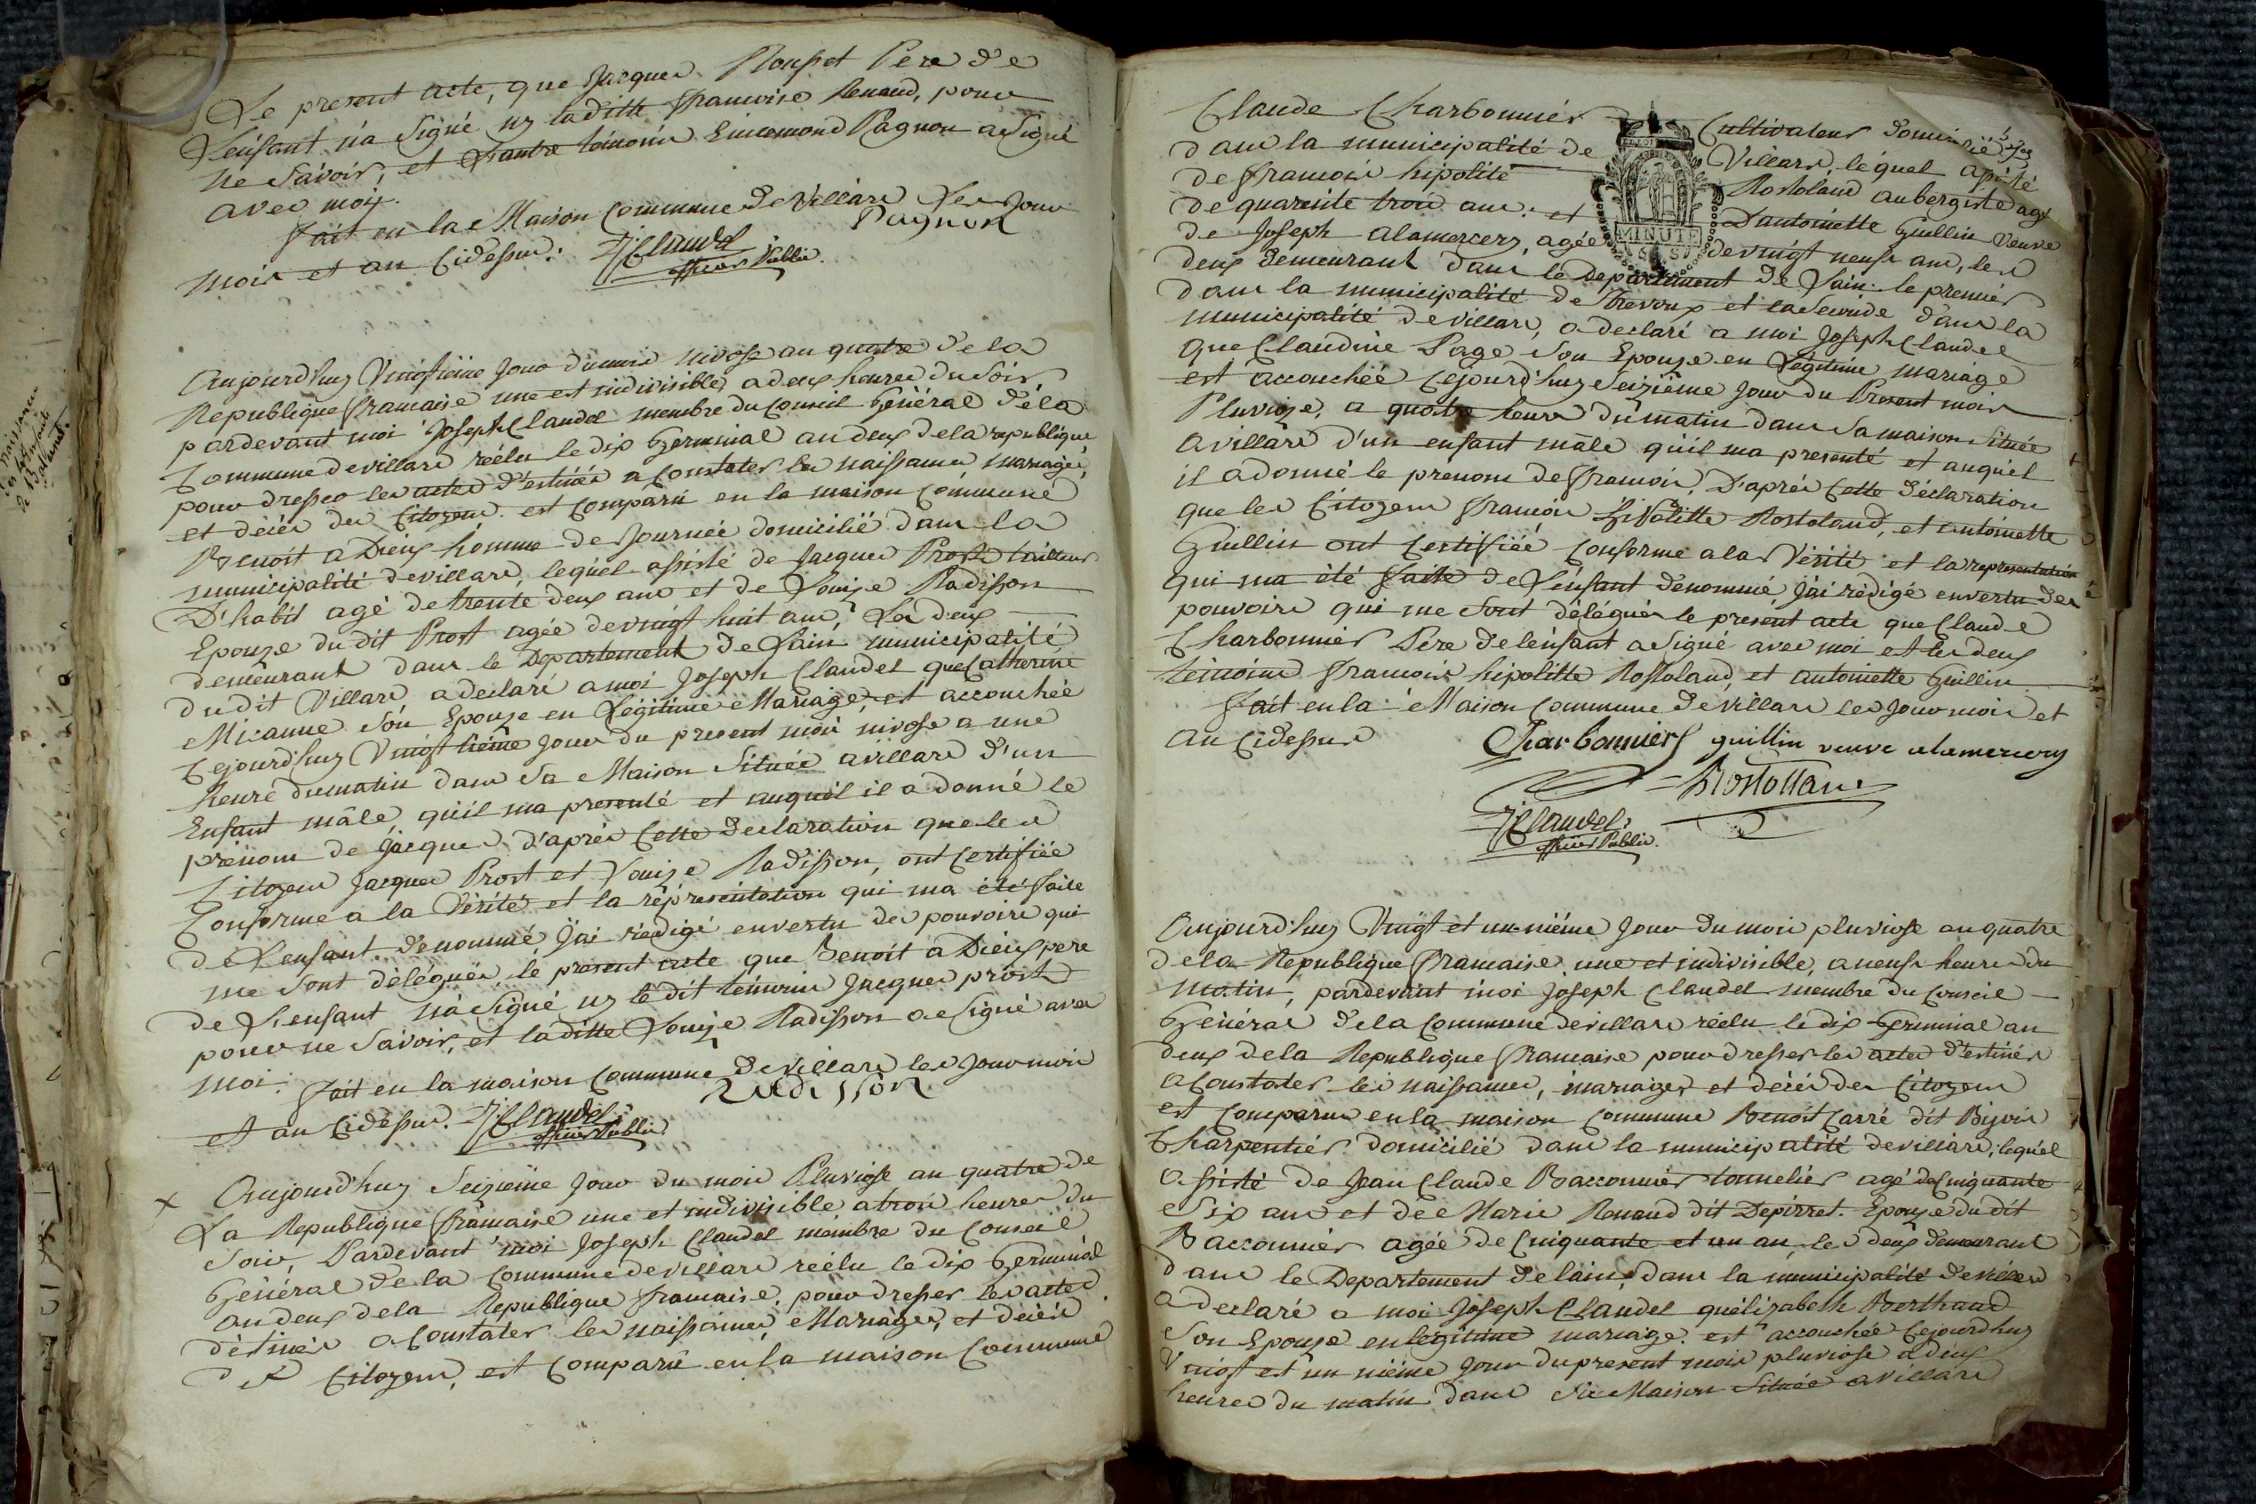 Le present acte, que Jacques Rousset Père de
L'enfant n'a signé ny laditte francoise Renaud, pour
ne savoir, et L'autre témoins Ennemond Pagnon a signé
avec moy.
fait en la Maison Commune de Villars Les Jour
Pagnon
mois et an Cidessus. JClaudel
officier Public
Aujourd'huy Vingtième Jour du mois nivose an quatre de la
Republique francaise une et indivisible, a deux heures du soir,
pardevant moi Joseph Claudel membre du Conseil Général de la
Commune de villars réélu le dix Germinal an deux de la republique
pour dresser les actes destinés a Constater les naissances, mariages,
et décès des Citoyens. est comparu en la maison Commune
Benoit a Dieux homme de Journée domicilié dans la
municipalité de villars, lequel assisté de Jacques Prost tailleur
D'habit agé de trente deux ans et de Louise Radisson
Epouze du dit Prost agée de vingt huit ans, Les deux
demeurant dans le Departement de L'ain municipalité
du dit Villars, a déclaré a moi Joseph Claudel que Catherine
Mizanne son Epouze en Légitime Mariage, est accouchée
Cejourd'huy Vingtième Jour du present mois nivose a une
heure du matin dans Sa Maison Située a villars d'un
Enfant mâle, qu'il ma presenté et auquel il a donné le
prénom de Jacques d'après Cette déclaration que les
Citoyens Jacques Prost et Louise Radisson, ont Certifiée
Conforme a la Vérité et la représentation qui ma été faite
de L'enfant dénommé, J'ai rédigé en vertu des pouvoirs qui
me sont délégués, le present acte que Benoit a Dieux pere
de L'enfant n'a signé ny le dit témoin Jacques prost
pour ne savoir, et laditte Louise Radisson a signé avec
moi.
fait en la maison Commune de villars les Jour mois
Radisson
et an Cidessus. JClaudel
officier Public
x Aujourd'huy Seizième Jour du mois Pluviose an quatre de
La Republique francaise une et indivisible a trois heures du
Soir, Pardevant moi Joseph Claudel membre du Conseil
Général de la Commune de villars réélu le dix Germinal
an deux de la Republique francaise, pour dresser les actes
déstinés a Constater les naissances, Mariages, et décès
des Citoyens, est Comparu en la maison Commune
Claude Charbonnier Cultivateur domicilié
dans la municipalité de Villars, lequel assisté
de francois hipolite Rostoland aubergiste agé
de quarante trois ans; et D'antoinette Guillin Veuve
MINUTE
de Joseph alamercery, agée de vingt neuf ans, les
deux demeurant dans le Departement de L'ain. le premier
dans la municipalité de Trevoux et la Seconde dans la
municipalité de villars, a declaré a moi Joseph Claudel
que Claudine Page Son Epouze en Légitime mariage
est accouchée Cejourd'huy Seizième Jour du Present mois
Pluviose, a quatre heures du matin dans Sa maison Située
a villars d'un enfant mâle qu'il ma presenté et auquel
il a donné le prenom de francois, D'après Cette déclaration
que les Citoyens francois hipolitte Rostoland, et antoinette
Guillin ont Certifiéé Conforme a la Vérité et la representation
qui ma été faite de L'énfant dénommé J'ai rédigé en vertu des
pouvoirs qui me sont délégués le présent acte que Claude
Charbonnier Père de lenfant a signé avec moi et les deux
témoins francois hipolitte Rostoland, et antoinette Guillin
fait en la Maison Commune de villars les Jour mois et
an Cidessus
Charbonnier guillin veuve alamercery
Rostollan
JClaudel
officier Public
Aujourd'huy Vingt et un nième Jour du mois pluviose an quatre
de la Republique francaise une et indivisible, a neuf heures du
matin, pardevant moi Joseph Claudel membre du Conseil
Général de la Commune de villars réélu le dix Germinal an
deux de la Republique francaise pour dresser les actes d'estinés
a Constater les naissances, mariages et décès des Citoyens
est Comparu en la maison Commune Benoit Carré dit Bijoin
Charpentier domicilié dans la municipalité de villars, lequel
assisté de Jean Claude Baconnier tonnelier agé de Cinquante
Six ans et de Marie Renaud dit Depirret Epouze du dit
Baconnier agée de Cinquante et un an, les deux demeurant
dans le Departement de lain, dans la municipalité de villars
a declaré a moi Joseph Claudel qu'elizabeth Berthaud
Son Epouze en legitime mariage est accouchée Cejourdhuy
Vingt et un nième Jour du present mois pluviose a deux
heures du matin dans Sa Maison Située a villars